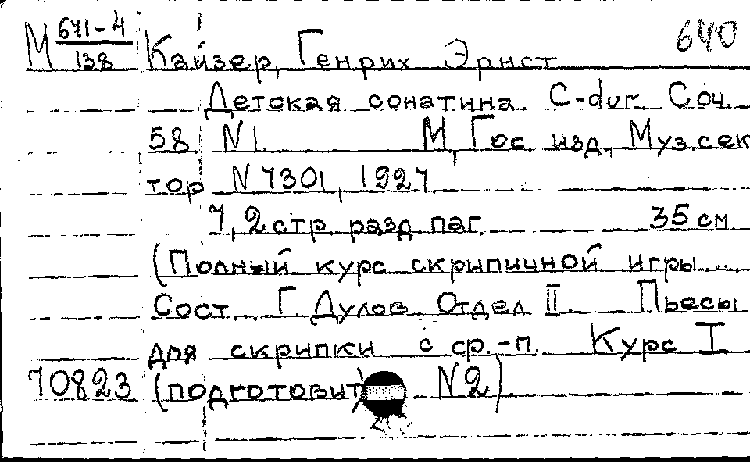 М 671-4/138 Кайзер, Генрих Эрнст 640
Детская сонатина C-dur. Соч.
58 N1. М, Гос. изд., Муз. сек
тор N 7301, 1927
7, 2 стр. разд. паг. 35 см
(Полный курс скрипичной игры.
Сост. Г. Дулов. Отдел II. Пьесы
для скрипки с ср.-п. Курс I
70823 (подготовит) N2)